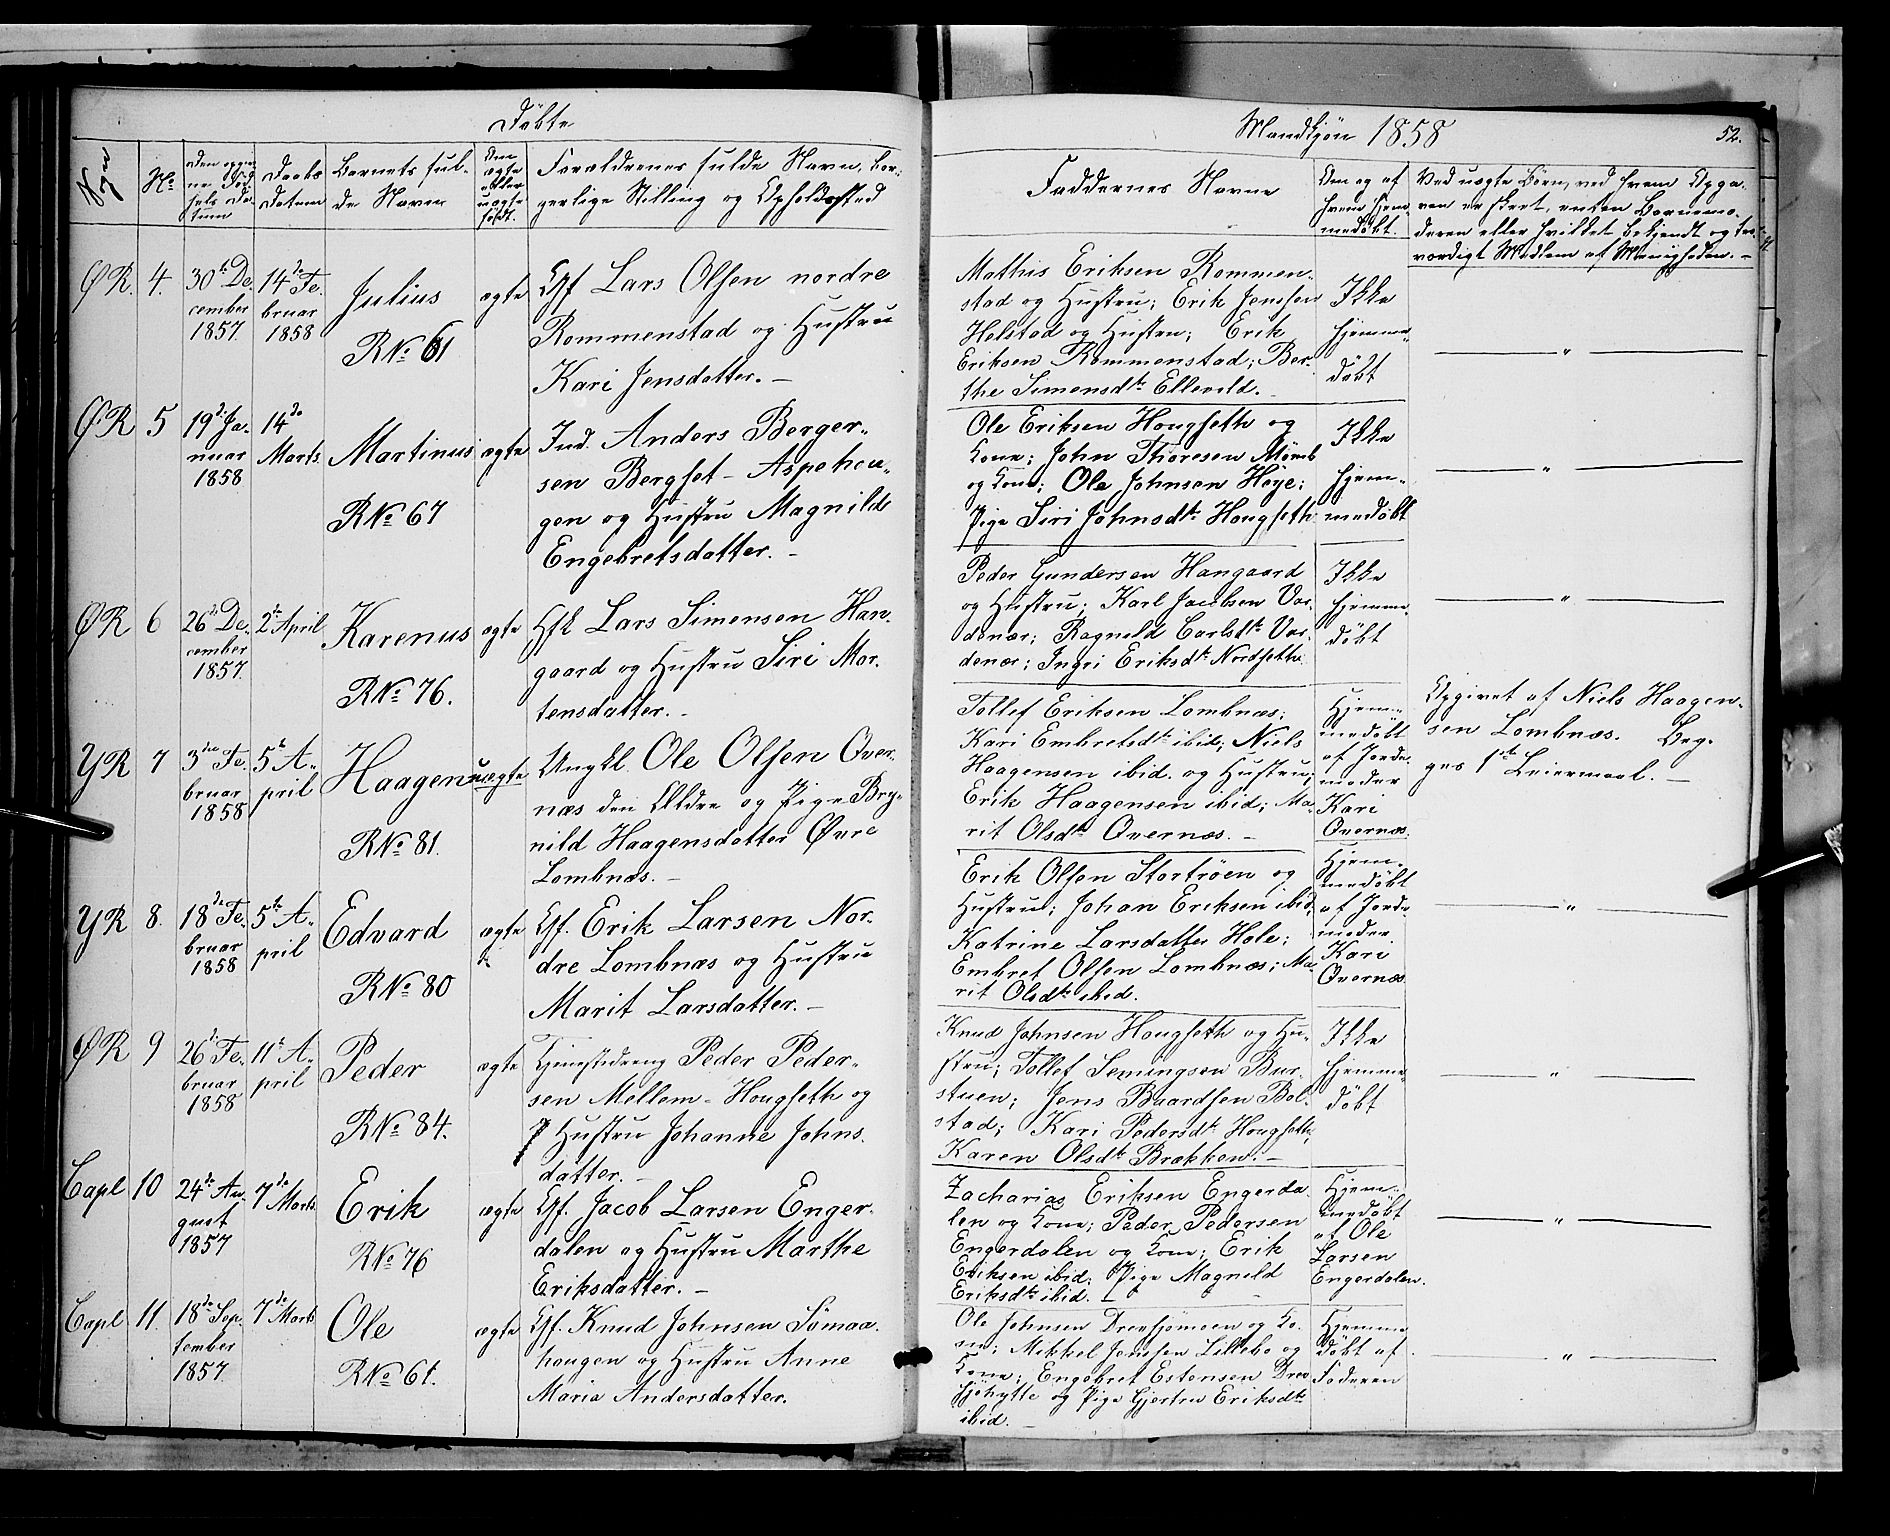 Døbte
Mandkjøn 1858
52.
Sogn
No
Den opgivne Fødsels Datum
Daabs Datum
Barnets fulde Navn
Om ægte eller uægte født.
Forældrenes fulde Navn, borgerlige Stilling og Opholdssted
Faddernes Navne
Om og af hvem hjemmedøbt.
Ved uægte Børn, ved hvem Opgaven er skeet, enten Barnemoderen eller hvilket bekjendt og troværdigt Medlem af Menigheden. –
ØR. 4. 30te December 1857 14de Februar 1858
Julius
RNo 61
ægte
Gf Lars Olsen nordre
Rommenstad og Hustru
Kari Jensdatter. –
Mathis Eriksen Rommen-
stad og Hustru; Erik Jenssen
Holstad og Hustru; Erik
Eriksen Rommenstad; Ber-
the Simensdtr Ellevold. –
Ikke
hjemme-
døbt
ØR 5 19de Januar 1858 14de Marts.
Martinus
RNo 67
ægte
Ind. Anders Berger-
sen Bergset – Aspehou-
gen og Hustru Magnilde
Engebretsdatter. –
Ole Eriksen Hougseth og
Kone; John Thoresen Mömb
og Kone; Ole Johnsen Høye;
Pige Siri Johnsdtr Hougseth
Ikke
hjem-
medøbt
ØR 6 26de December 1857. 2den April
Karenus
RNo 76.
ægte
Hfk Lars Simensen Han-
gaard og Hustru Siri Mor-
tensdatter. –
Peder Gundersen Hangaard
og Hustru; Karl Jacobsen Var-
denær; Ragnild Carlsdtr Var-
denær; Ingri Eriksdtr Nordseth
Ikke
hjemme-
døbt
YR 7 3die Februar 1858 5te April
Haagen
RNo 81.
uægte
Ungkl. Ole Olsen Over-
næs den Ældre og Pige Bry-
nild Haagensdatter Øvre
Lombnæs. –
Tollef Eriksen Lombnæs;
Kari Embretsdtr ibid; Niels
Haagensen ibid. og Hustru;
Erik Haagensen ibid; Ma-
rit Olsdtr Overnæs. –
Hjem-
medøbt
af Jorde-
moder
Kari
Overnæs.
Opgivet af Niels Haagen-
sen Lombnæs. Beg-
ges 1ste Leiermaal. –
YR 8. 18de Februar 1858 5te April
Edvard
RNo 80
ægte
Gf. Erik Larsen Nor-
dre Lombnæs og Hustru
Marit Larsdatter. –
Erik Olsen Stortrøen og
Hustru; Johan Eriksen ibid;
Katrine Larsdatter Hole;
Embret Olsen Lombnæs; Ma-
rit Olsdtr ibid.
Hjem-
medøbt
af Jorde-
moder
Kari
Overnæs
ØR 9 26de Februar 1858 11te April
Peder
RNo 84.
ægte
Tjenestedreng Peder Peder-
sen Mellem-Hougseth og
Hustru Johanne Johns-
datter. –
Knud Johnsen Hougseth og Hu-
stru; Tollef Semingsen Bur-
stuen; Jens Baardsen Bol-
stad; Kari Pedersdtr Hougseth;
Karen Olsdtr Brækken. –
Ikke
hjemme-
døbt
Capl 10 24de August 1857 7de Marts.
Erik
RNo 76
ægte
Gf. Jacob Larsen Enger-
dalen og Hustru Marthe
Eriksdatter. –
Zacharias Eriksen Engerda-
len og Kone; Peder Pedersen
Engerdalen og Kone; Erik
Eriksen ibid; Pige Magnild
Eriksdtr ibid.
Hjem-
medøbt
af Ole
Larsen
Engerdalen.
Capl 11. 18de September 1857. 7de Marts
Ole
RNo 61.
ægte
Gf. Knud Johnsen Sømaa-
hougen og Hustru Anne
Maria Andersdatter.
Ole Johnsen Drevsjømoen og Ko-
ne; Mikkel Jonsen Lillebo og
Kone; Engebret Estensen Drev-
sjøhytte og Pige Gjertru Eriksdtr
ibid. –
Hjemme-
døbt af
Faderen